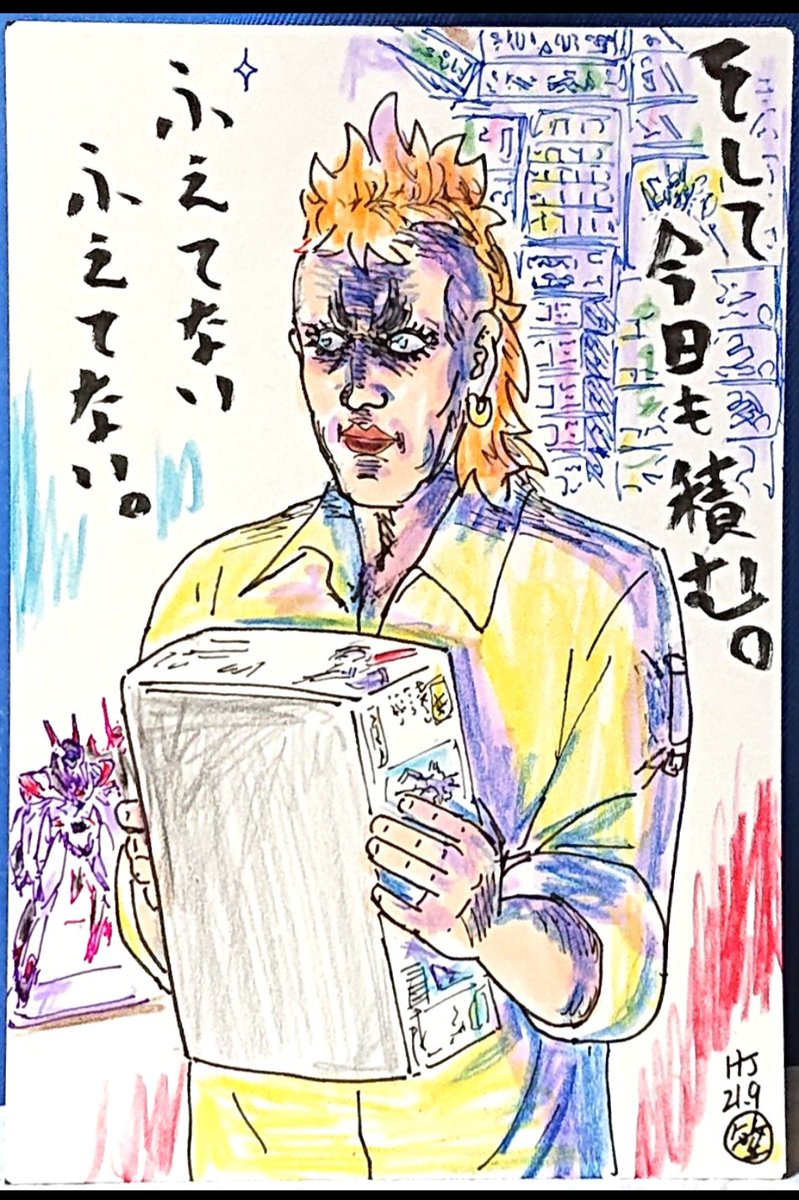 そして
今日も積む。
ふえてない
ふえてない。
HJ
21.9